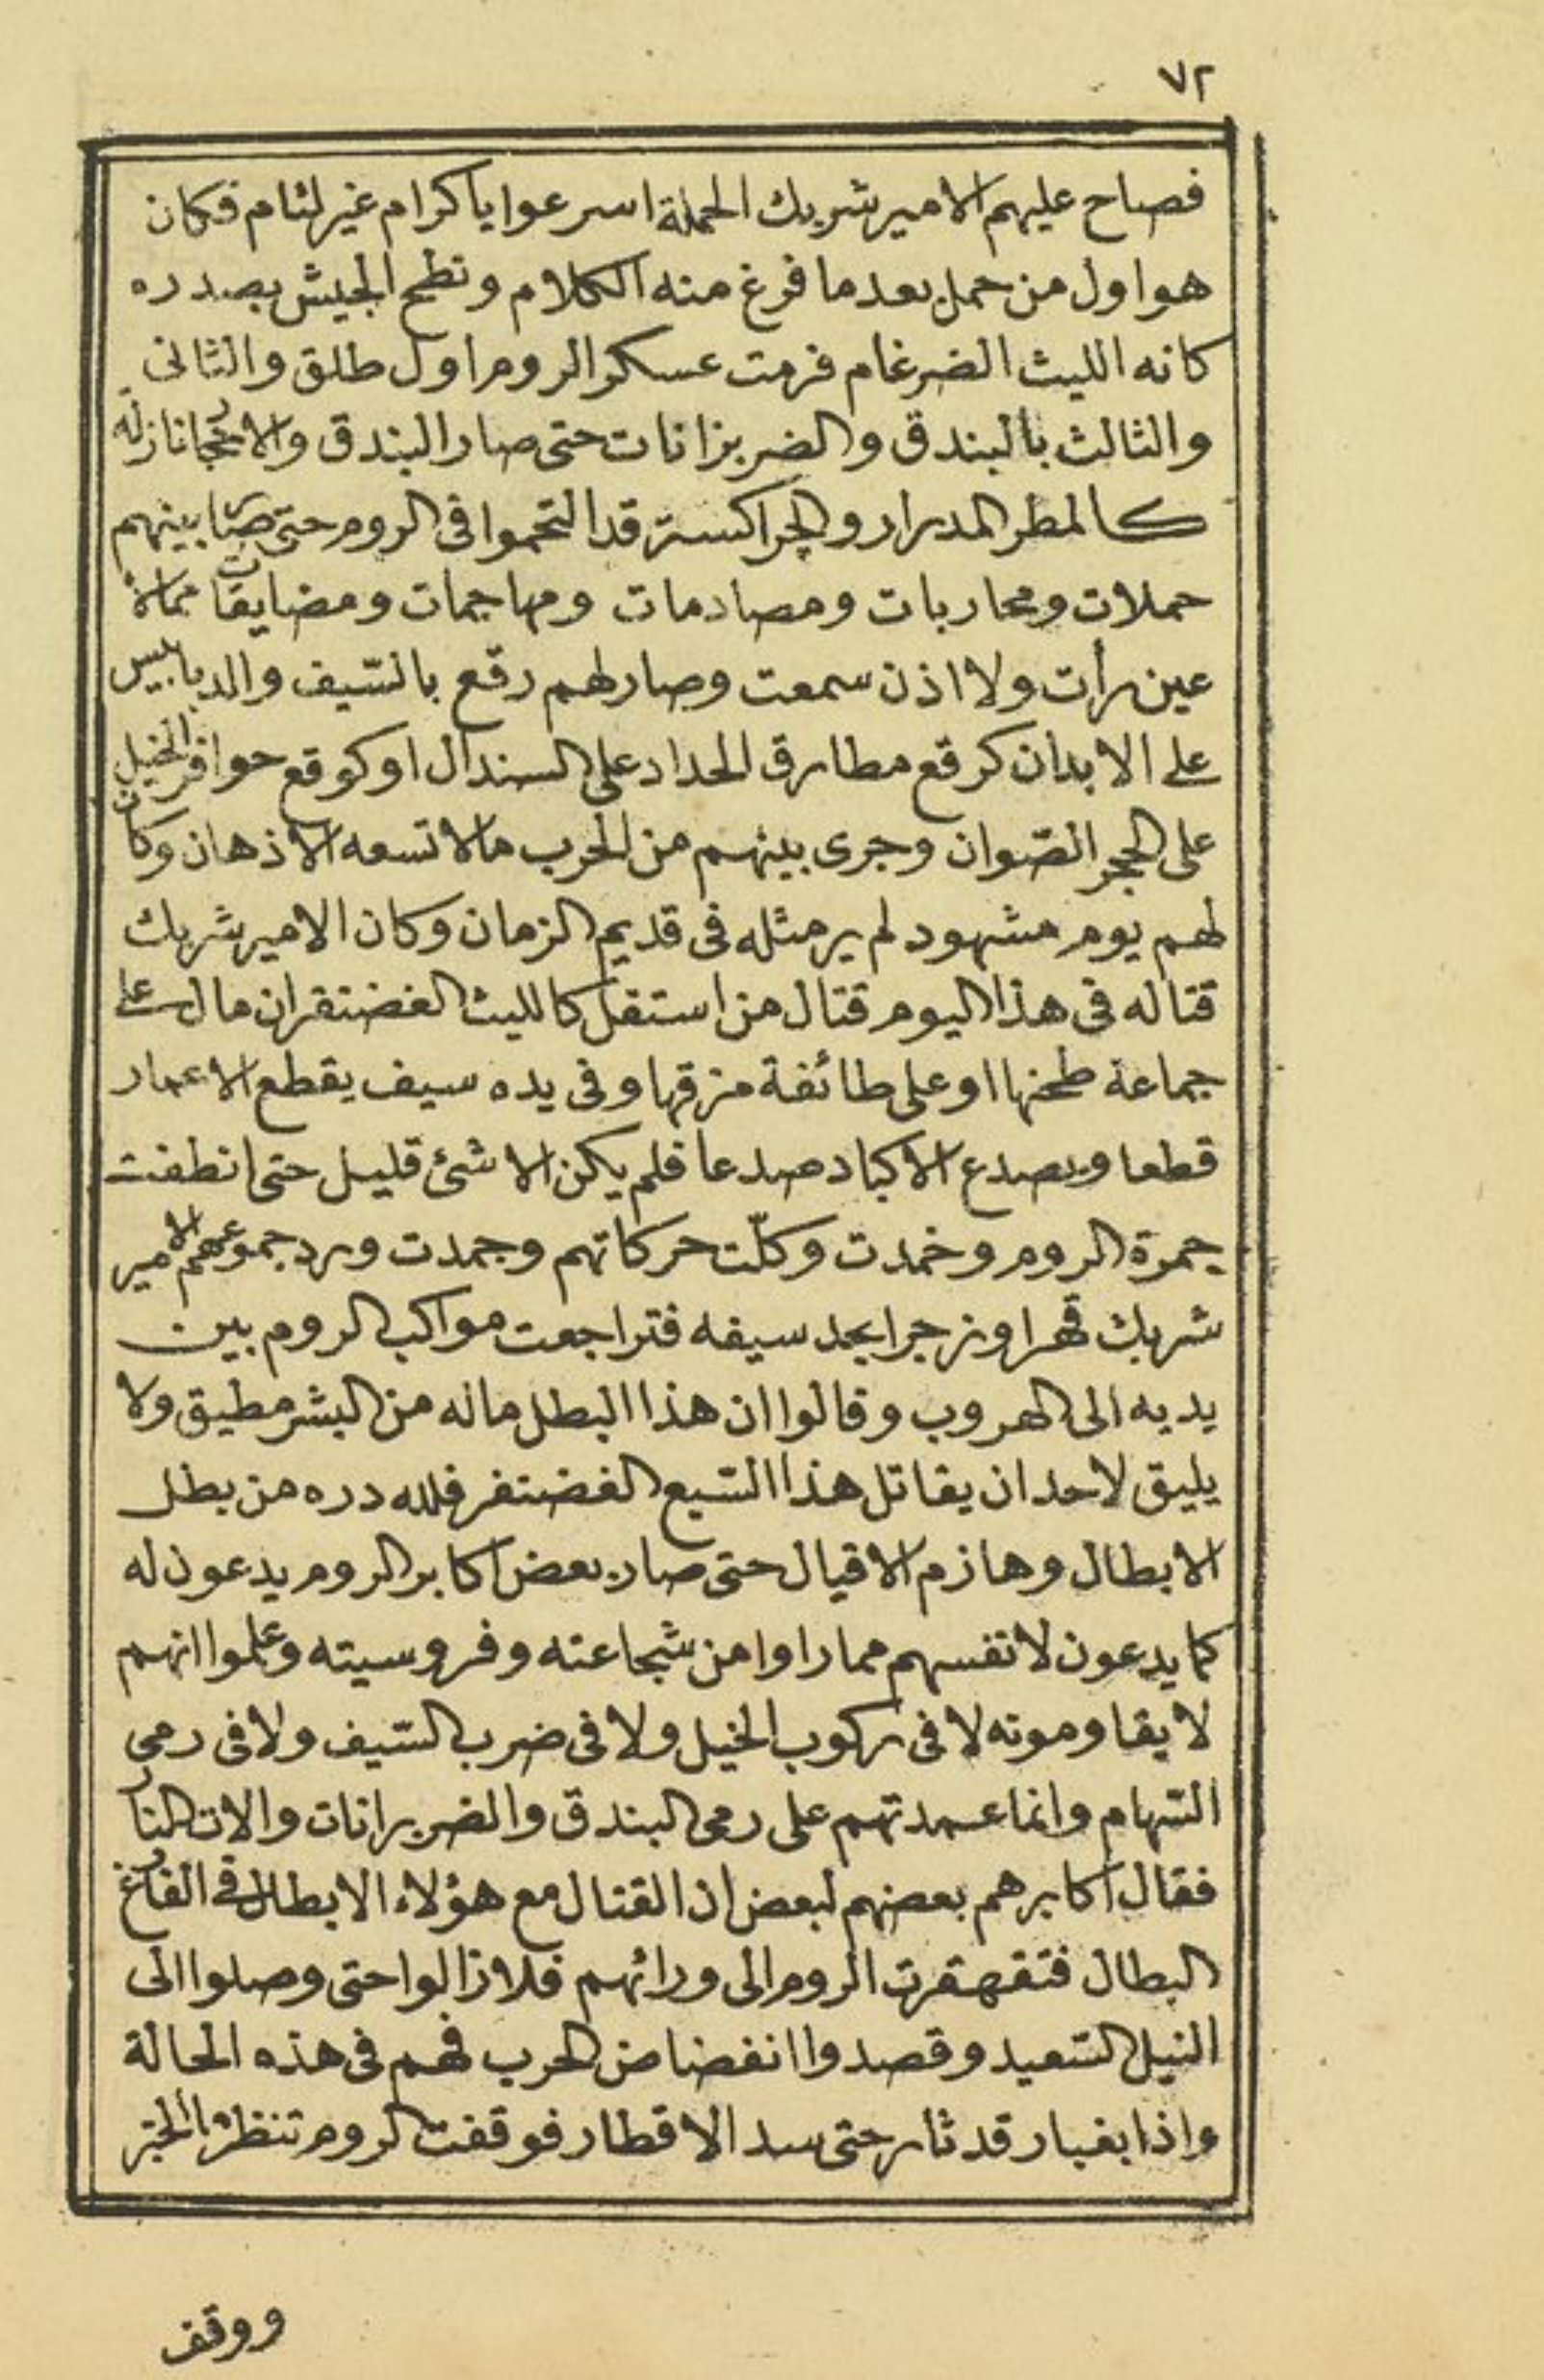 ٧٢
فصاح عليهم الامير شربك الحملة اسرعوا يا كرام غير لئام فكان
هو اول من حمل بعد ما فرغ منه الكلام ونطح الجيش بصدره
كانه الليث الضرغام فرمت عسكر الروم اول طلق والثانى
والثالث بالبندق والضربزانات حتى صار البندق والاحجار نازله
كالمطر المدرار والجراكسة قد التحموا فى الروم حتى صار بينهم
حملات ومحاربات ومصادمات ومهاجمات ومضايقات مما لا
عين رأت ولا اذن سمعت وصار لهم رقع بالسّيف والدبابيس
على الابدان كرقع مطارق الحداد على السندال او كوقع حوافر الخيل
على الحجر الصّوان وجرى بينهم من الحرب ما لا تسعه الاذهان وكان
لهم يوم مشهود لم ير مثله فى قديم الزمان وكان الامير شربك
قتاله فى هذا اليوم قتال من استقل كالليث الغضنفر ان مال على
جماعة طحنها او على طائفة مزقها وفى يده سيف يقطع الاعمار
قطعا ويصدع الاكباد صدعا فلم يكن الا شئ قليل حتى انطفت
جمرة الروم وخمدت وكلّت حركاتهم وجمدت ورد جموعهم الامير
شربك قهرا وزجرا بحد سيفه فتراجعت مواكب الروم بين
يديه الى الهروب وقالوا ان هذا البطل ماله من البشر مطيق ولا
يليق لاحد ان يقاتل هذا السّبع الغضنفر فلله دره من بطل
الابطال وهازم الاقيال حتى صار بعض اكابر الروم يدعون له
كما يدعون لانفسهم مما راوا من شجاعته وفروسيته وعلموا انهم
لا يقاومونه لا فى ركوب الخيل ولا فى ضرب السّيف ولا فى رمى
السّهام وانما عمدتهم على رمى البندق والضربرانات والات النار
فقال اكابرهم بعضهم لبعض ان القتال مع هؤلاء الابطال فى الفارغ
البطال فتقهقرت الروم الى ورائهم فلا زالوا حتى وصلوا الى
النيل السّعيد وقصدوا انفضاض الحرب فهم فى هذه الحالة
واذا بغبار قد ثار حتى سد الاقطار فوقفت الروم تنظر ما الخبر
ووقف